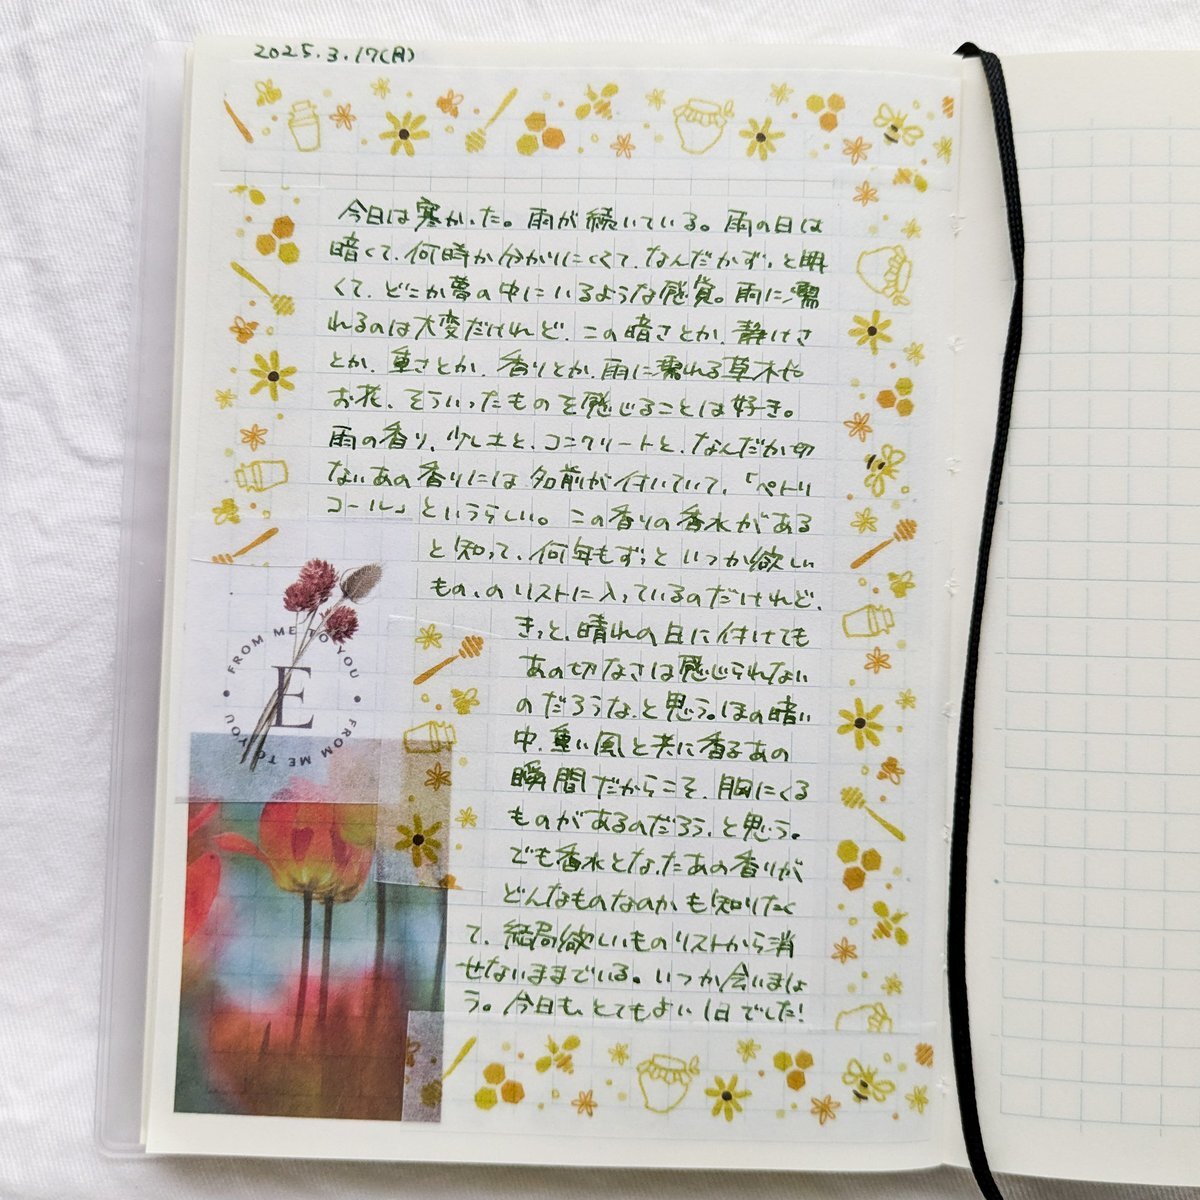 2025.3.17(月)
今日は寒かった。雨が続いている。雨の日は
暗くて、何時か分かりにくくて、なんだかずっと眠
くて、どこか夢の中にいるような感覚。雨に濡
れるのは大変だけれど、この暗さとか、静けさ
とか、重さとか、香りとか、雨に濡れる草木や
お花、そういったものを感じることは好き。
雨の香り、少し土と、コンクリートと、なんだか切
ないあの香りには名前が付いていて、「ペトリ
コール」というらしい。この香りの香水がある
と知って、何年もずっといつか欲しい
もの、のリストに入っているのだけれど、
きっと、晴れの日に付けても
あの切なさは感じられない
のだろうな、と思う。ほの暗い
中、重い風と共に香るあの
瞬間だからこそ、胸にくる
ものがあるのだろう、と思う。
でも香水となったあの香りが
どんなものなのかも知りたく
て、結局欲しいものリストから消
せないままでいる。いつか会いましょ
う。今日も、とてもよい1日でした!
FROM ME TO YOU • FROM ME TO YOU •
E